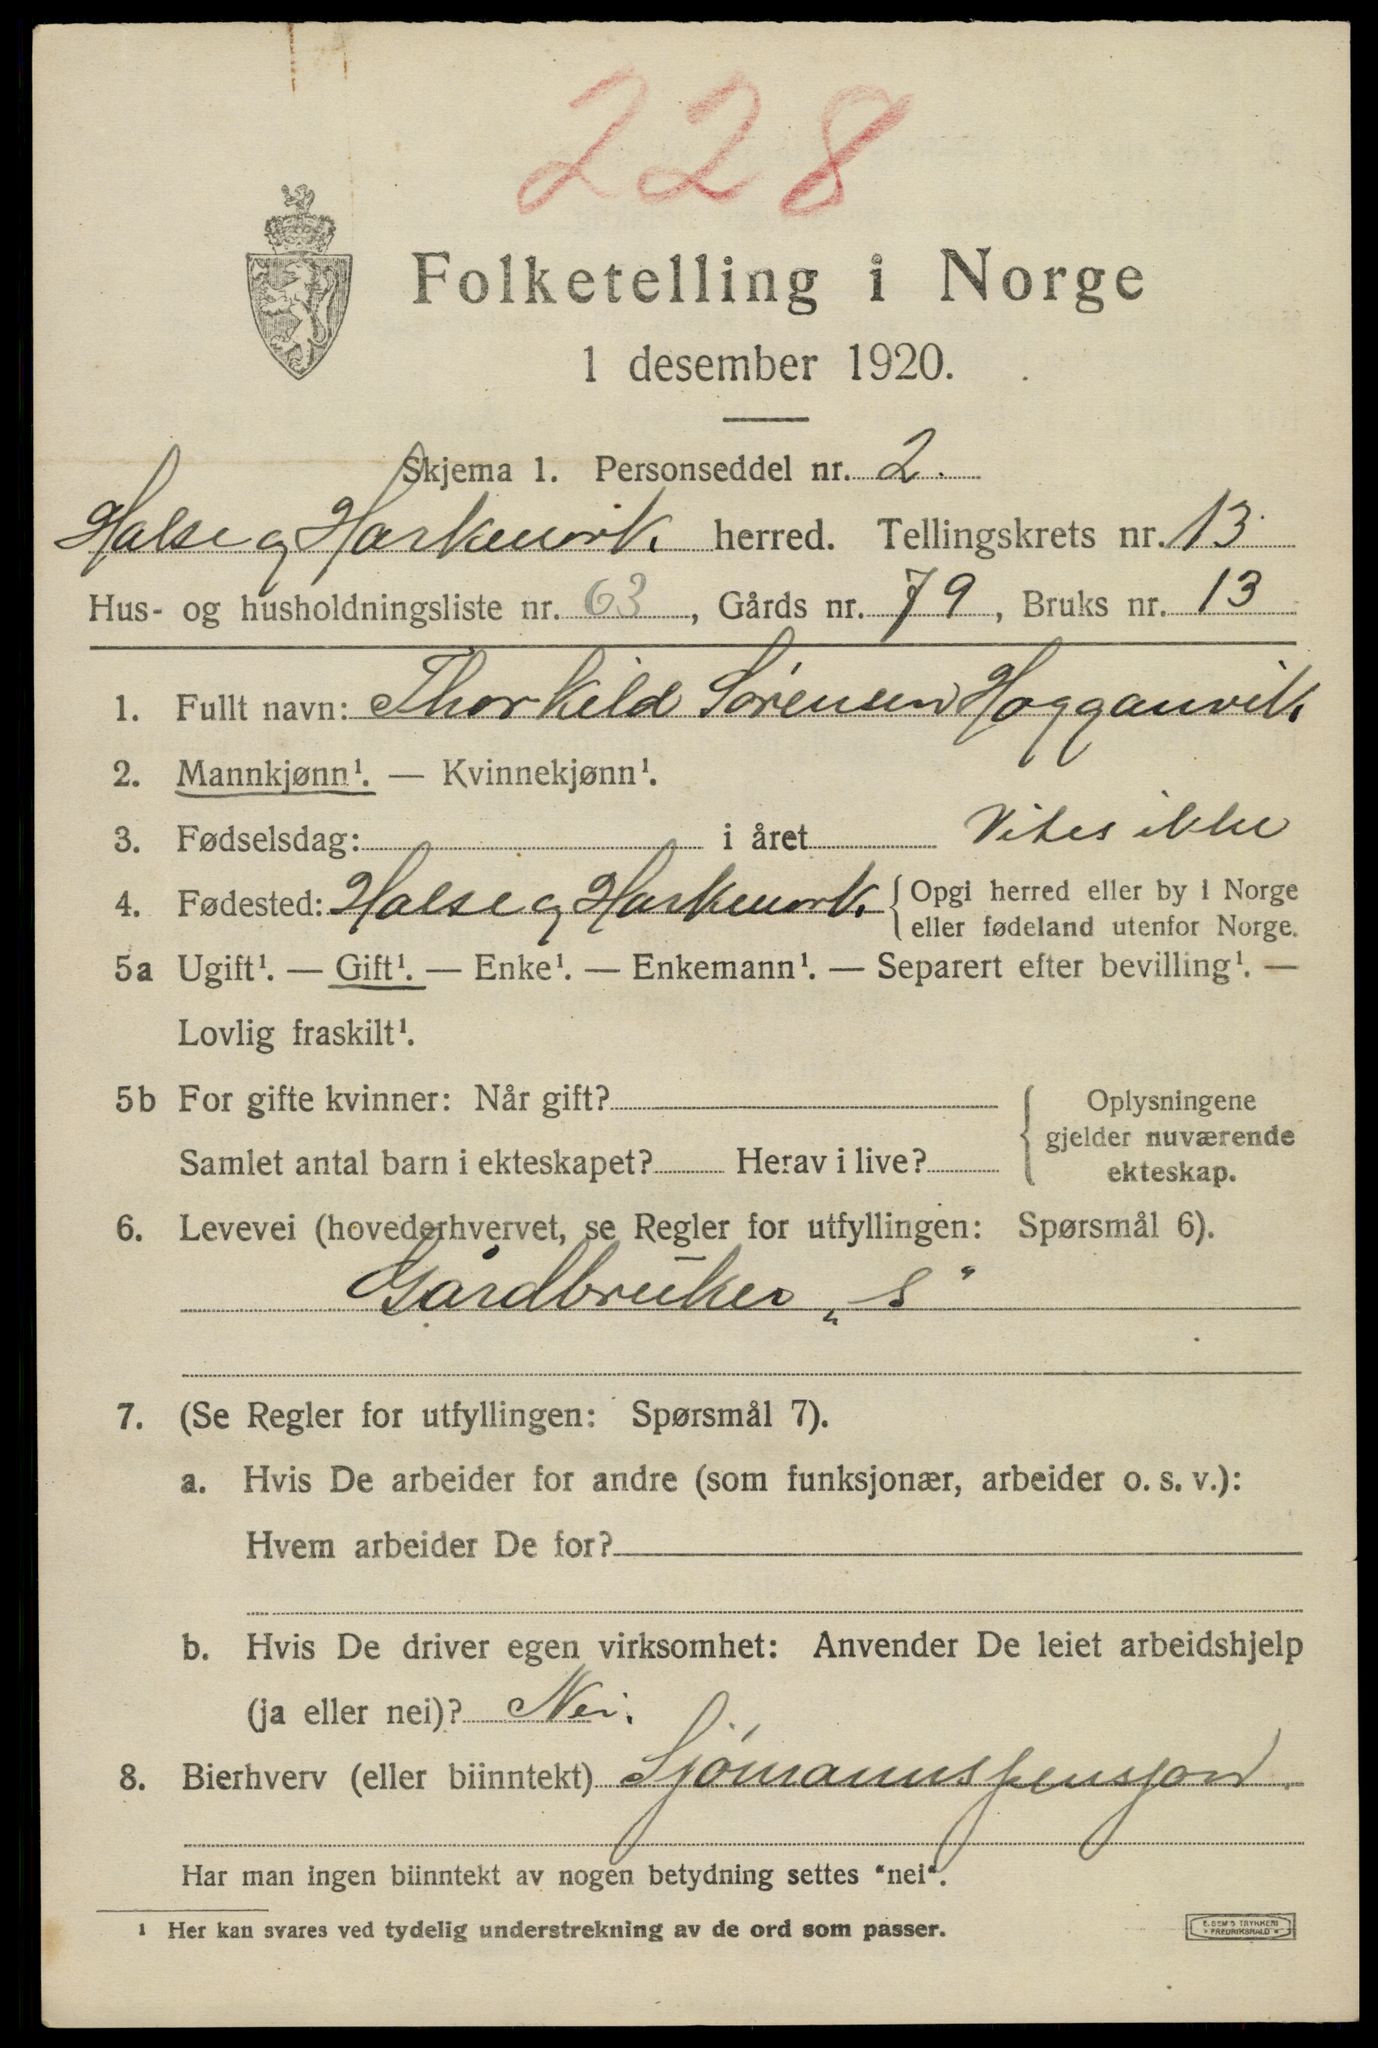 228
Folketelling i Norge
1 desember 1920.
Skjema 1. Personseddel nr. 2.
Halse og Harkmark herred. Tellingskrets nr. 13
Hus- og husholdningsliste nr. 63, Gårds nr. 79, Bruks nr. 13
1. Fullt navn: Thorkild Sørensen Hogganvik
2. Mannkjønn¹. — Kvinnekjønn¹.
3. Fødselsdag: i året Vites ikke
4. Fødested: Halse og Harkmark { Opgi herred eller by i Norge
eller fødeland utenfor Norge.
5a Ugift¹. — Gift¹. — Enke¹. — Enkemann¹. — Separert efter bevilling¹. —
Lovlig fraskilt¹.
5b For gifte kvinner: Når gift?
Samlet antal barn i ekteskapet? Herav i live?
Oplysningene
gjelder nuværende
ekteskap.
6. Levevei (hovederhvervet, se Regler for utfyllingen: Spørsmål 6).
Gårdbruker „S“
7. (Se Regler for utfyllingen: Spørsmål 7).
a. Hvis De arbeider for andre (som funksjonær, arbeider o. s. v.):
Hvem arbeider De for?
b. Hvis De driver egen virksomhet: Anvender De leiet arbeidshjelp
(ja eller nei)? Nei.
8. Bierhverv (eller biinntekt) Sjømannspensjon.
Har man ingen biinntekt av nogen betydning settes "nei".
¹ Her kan svares ved tydelig understrekning av de ord som passer.
E. SEM'S TRYKKERI
FREDRIKSHALD